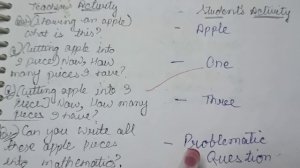 Teacher's Activity
Student's Activity
(Showing an apple)
what is this?
- Apple
Cutting apple into
1 piece) Now, How
many pieces I have?
- One
Cutting apple into 3
pieces) Now, How many
pieces I have?
- Three
Can you write all
these apple pieces
into mathematics?
- Problematic
Question